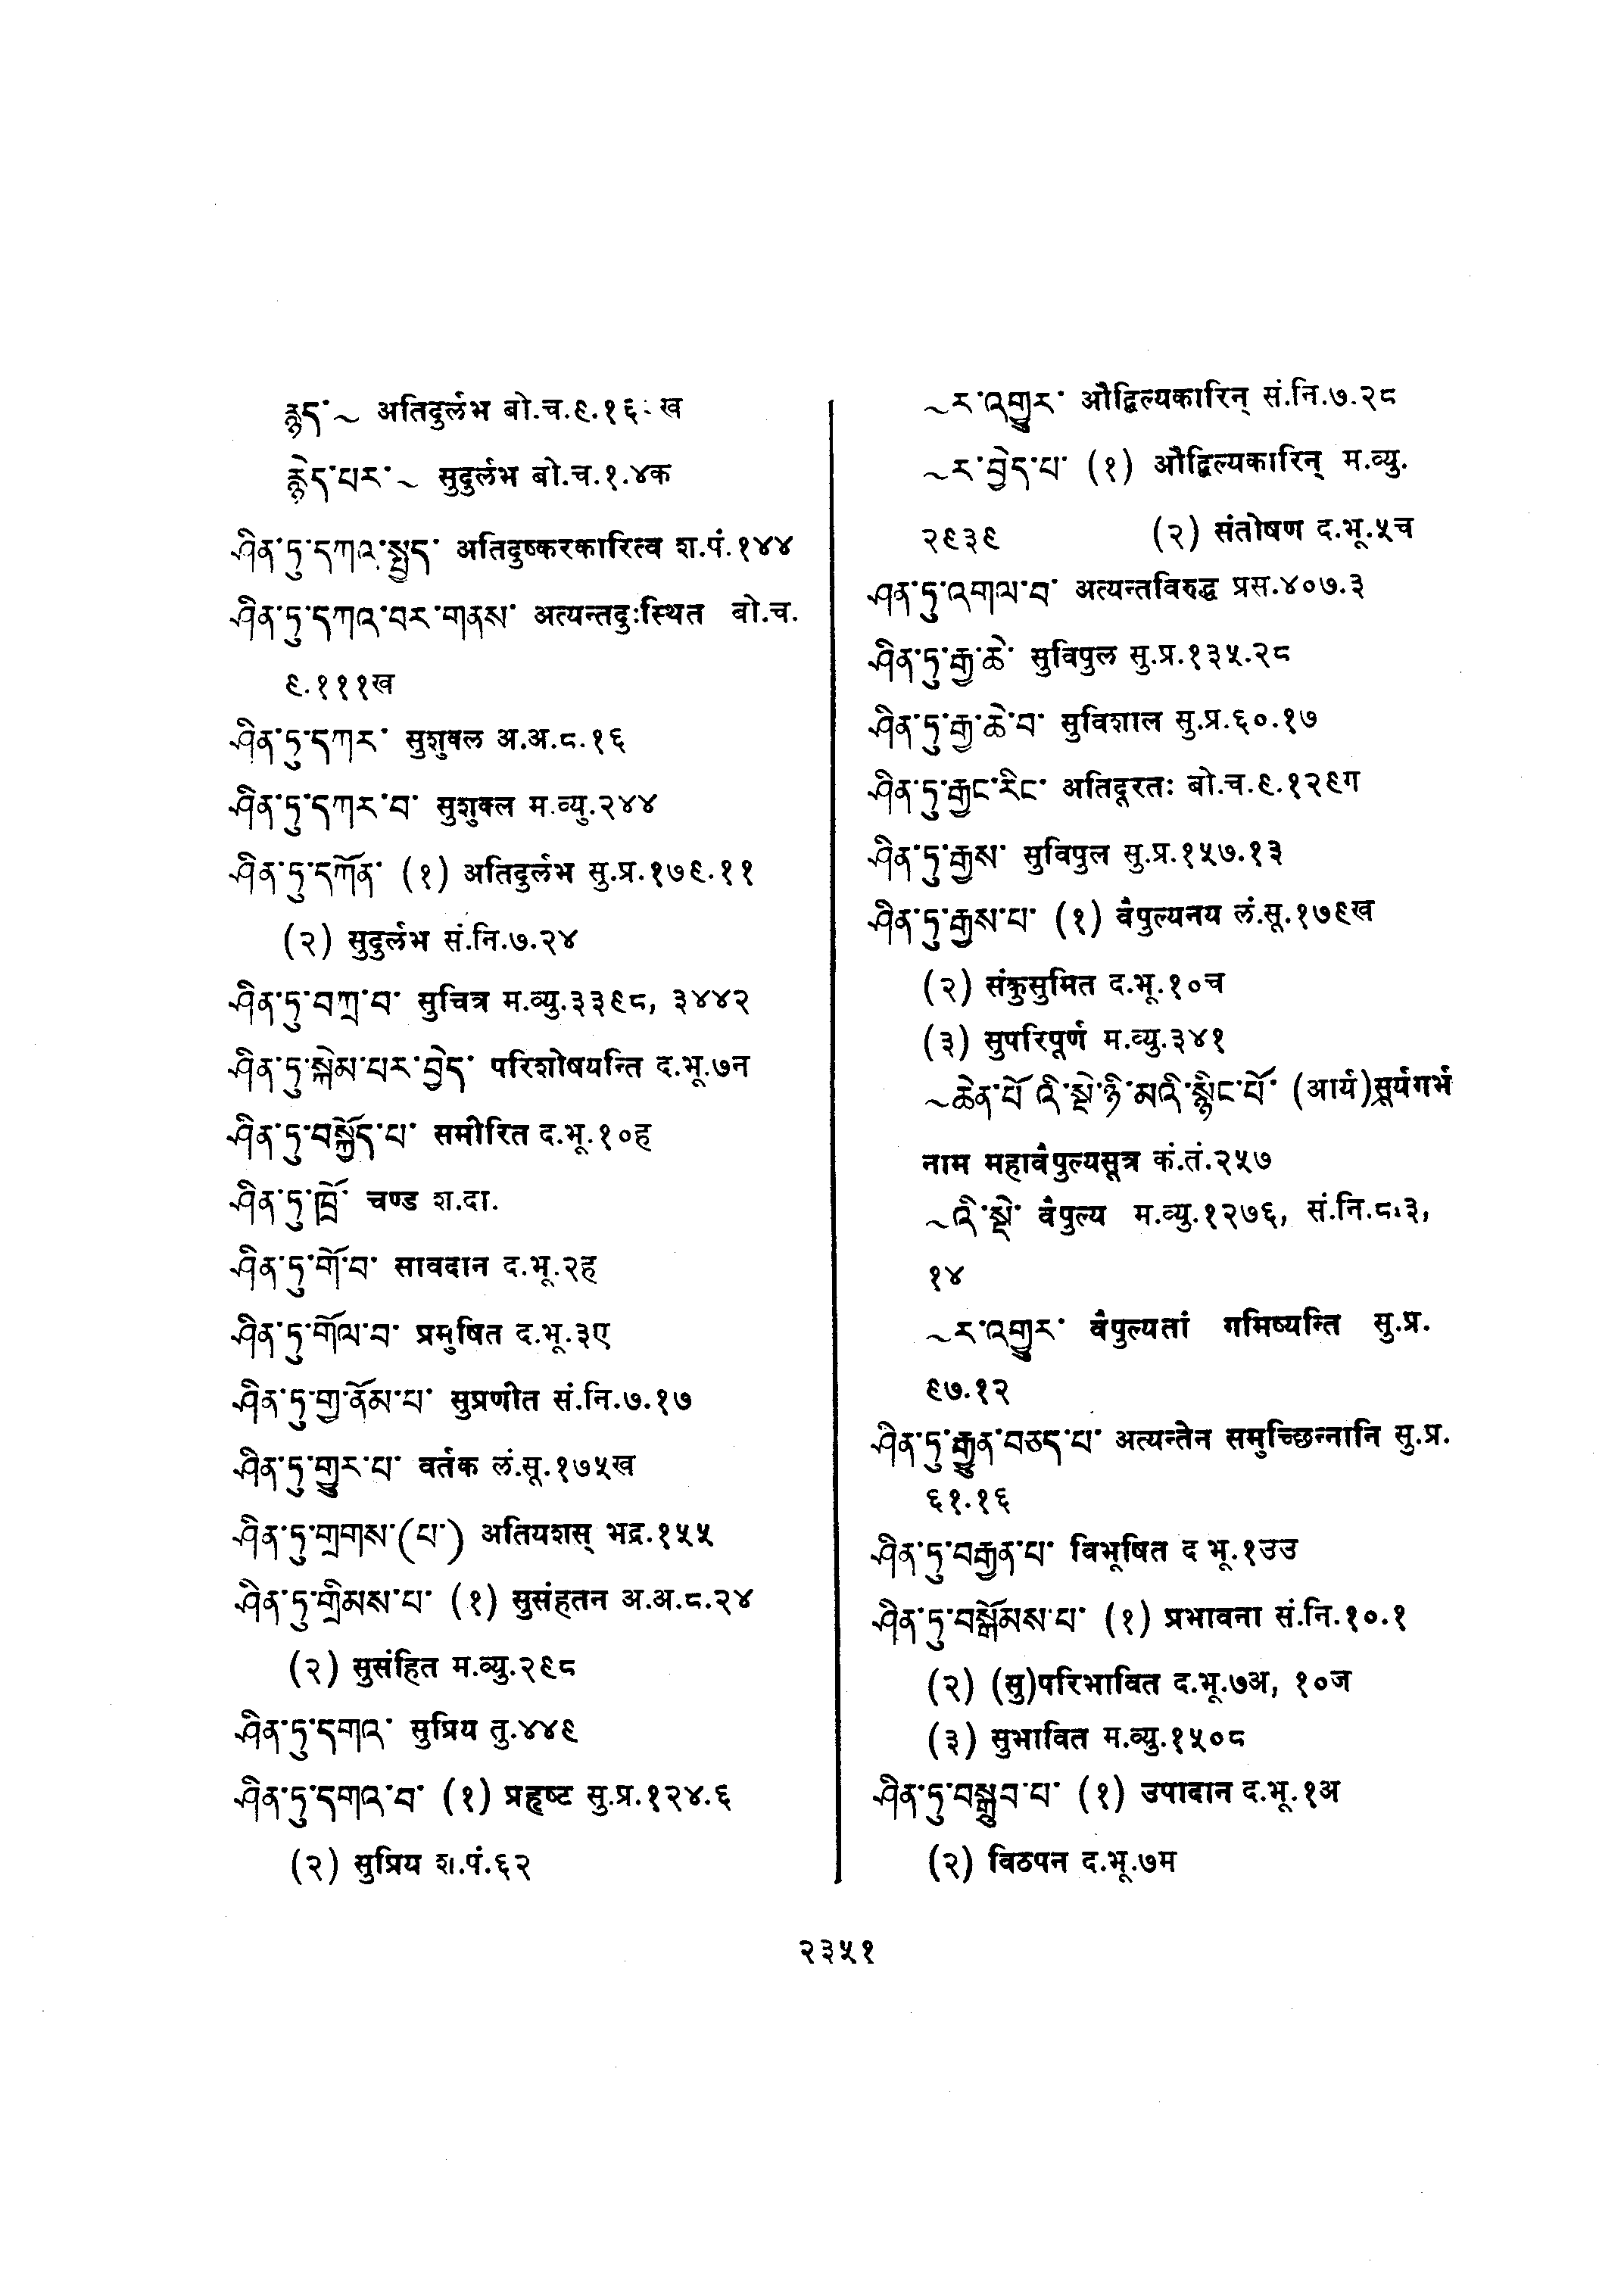 རྙད་~ अतिदुर्लभ बो.च.९.१६: ख
རྙེད་པར་~ सुदुर्लभ बो.च.१.४क
ཤིན་ཏུ་དཀའ་སྤྱད་ अतिदुष्करकारित्व श.पं.१४४
ཤིན་ཏུ་དཀའ་བར་གནས་ अत्यन्तदुःस्थित बो.च.
९.१११ख
ཤིན་ཏུ་དཀར་ सुशुक्ल अ.अ.८.१६
ཤིན་ཏུ་དཀར་བ་ सुशुक्ल म.व्यु.२४४
ཤིན་ཏུ་དཀོན་ (१) अतिदुर्लभ सु.प्र.१७९.११
(२) सुदुर्लभ सं.नि.७.२४
ཤིན་ཏུ་བཀྲ་བ་ सुचित्र म.व्यु.३३९८, ३४४२
ཤིན་ཏུ་སྐེམ་པར་བྱེད་ परिशोषयन्ति द.भू.७न
ཤིན་ཏུ་བསྐྱོད་པ་ समीरित द.भू.१०ह
ཤིན་ཏུ་ཁྲོ་ चण्ड श.दा.
ཤིན་ཏུ་གོ་བ་ सावदान द.भू.२ह
ཤིན་ཏུ་གོལ་བ་ प्रमुषित द.भू.३ए
ཤིན་ཏུ་གྱ་ནོམ་པ་ सुप्रणीत सं.नि.७.१७
ཤིན་ཏུ་གྱུར་པ་ वर्तक लं.सू.१७५ख
ཤིན་ཏུ་གྲགས་(པ་) अतियशस् भद्र.१५५
ཤིན་ཏུ་གྲིམས་པ་ (१) सुसंहतन अ.अ.८.२४
(२) सुसंहित म.व्यु.२९८
ཤིན་ཏུ་དགའ་ सुप्रिय तु.४४९
ཤིན་ཏུ་དགའ་བ་ (१) प्रहृष्ट सु.प्र.१२४.६
(२) सुप्रिय श.पं.६२
~ར་འགྱུར་ औद्विल्यकारिन् सं.नि.७.२८
~ར་བྱེད་པ་ (१) औद्विल्यकारिन् म.व्यु.
२९३९ (२) संतोषण द.भू.५च
ཤན་ཏུ་འགལ་བ་ अत्यन्तविरुद्ध प्रस.४०७.३
ཤིན་ཏུ་རྒྱ་ཆེ་ सुविपुल सु.प्र.१३५.२८
ཤིན་ཏུ་རྒྱ་ཆེ་བ་ सुविशाल सु.प्र.६०.१७
ཤིན་ཏུ་རྒྱང་རིང་ अतिदूरतः बो.च.९.१२९ग
ཤིན་ཏུ་རྒྱས་ सुविपुल सु.प्र.१५७.१३
ཤིན་ཏུ་རྒྱས་པ་ (१) वैपुल्यनय लं.सू.१७९ख
(२) संकुसुमित द.भू.१०च
(३) सुपरिपूर्ण म.व्यु.३४१
~ཆེན་པོ་འི་སྡེ་ཉི་མའི་སྙིང་པོ་ (आर्य)सूर्यगर्भ
नाम महावैपुल्यसूत्र कं.तं.२५७
~འི་སྡེ་ वैपुल्य म.व्यु.१२७६, सं.नि.८.३,
१४
~ར་འགྱུར་ वैपुल्यतां गमिष्यन्ति सु.प्र.
९७.१२
ཤིན་ཏུ་རྒྱུན་བཅད་པ་ अत्यन्तेन समुच्छिन्नानि सु.प्र.
६१.१६
ཤིན་ཏུ་བརྒྱན་པ་ विभूषित द भू.१उउ
ཤིན་ཏུ་བསྒོམས་པ་ (१) प्रभावना सं.नि.१०.१
(२) (सु)परिभावित द.भू.७अ, १०ज
(३) सुभावित म.व्यु.१५०८
ཤིན་ཏུ་བསྒྲུབ་པ་ (१) उपादान द.भू.१अ
(२) विठपन द.भू.७म
२३५१